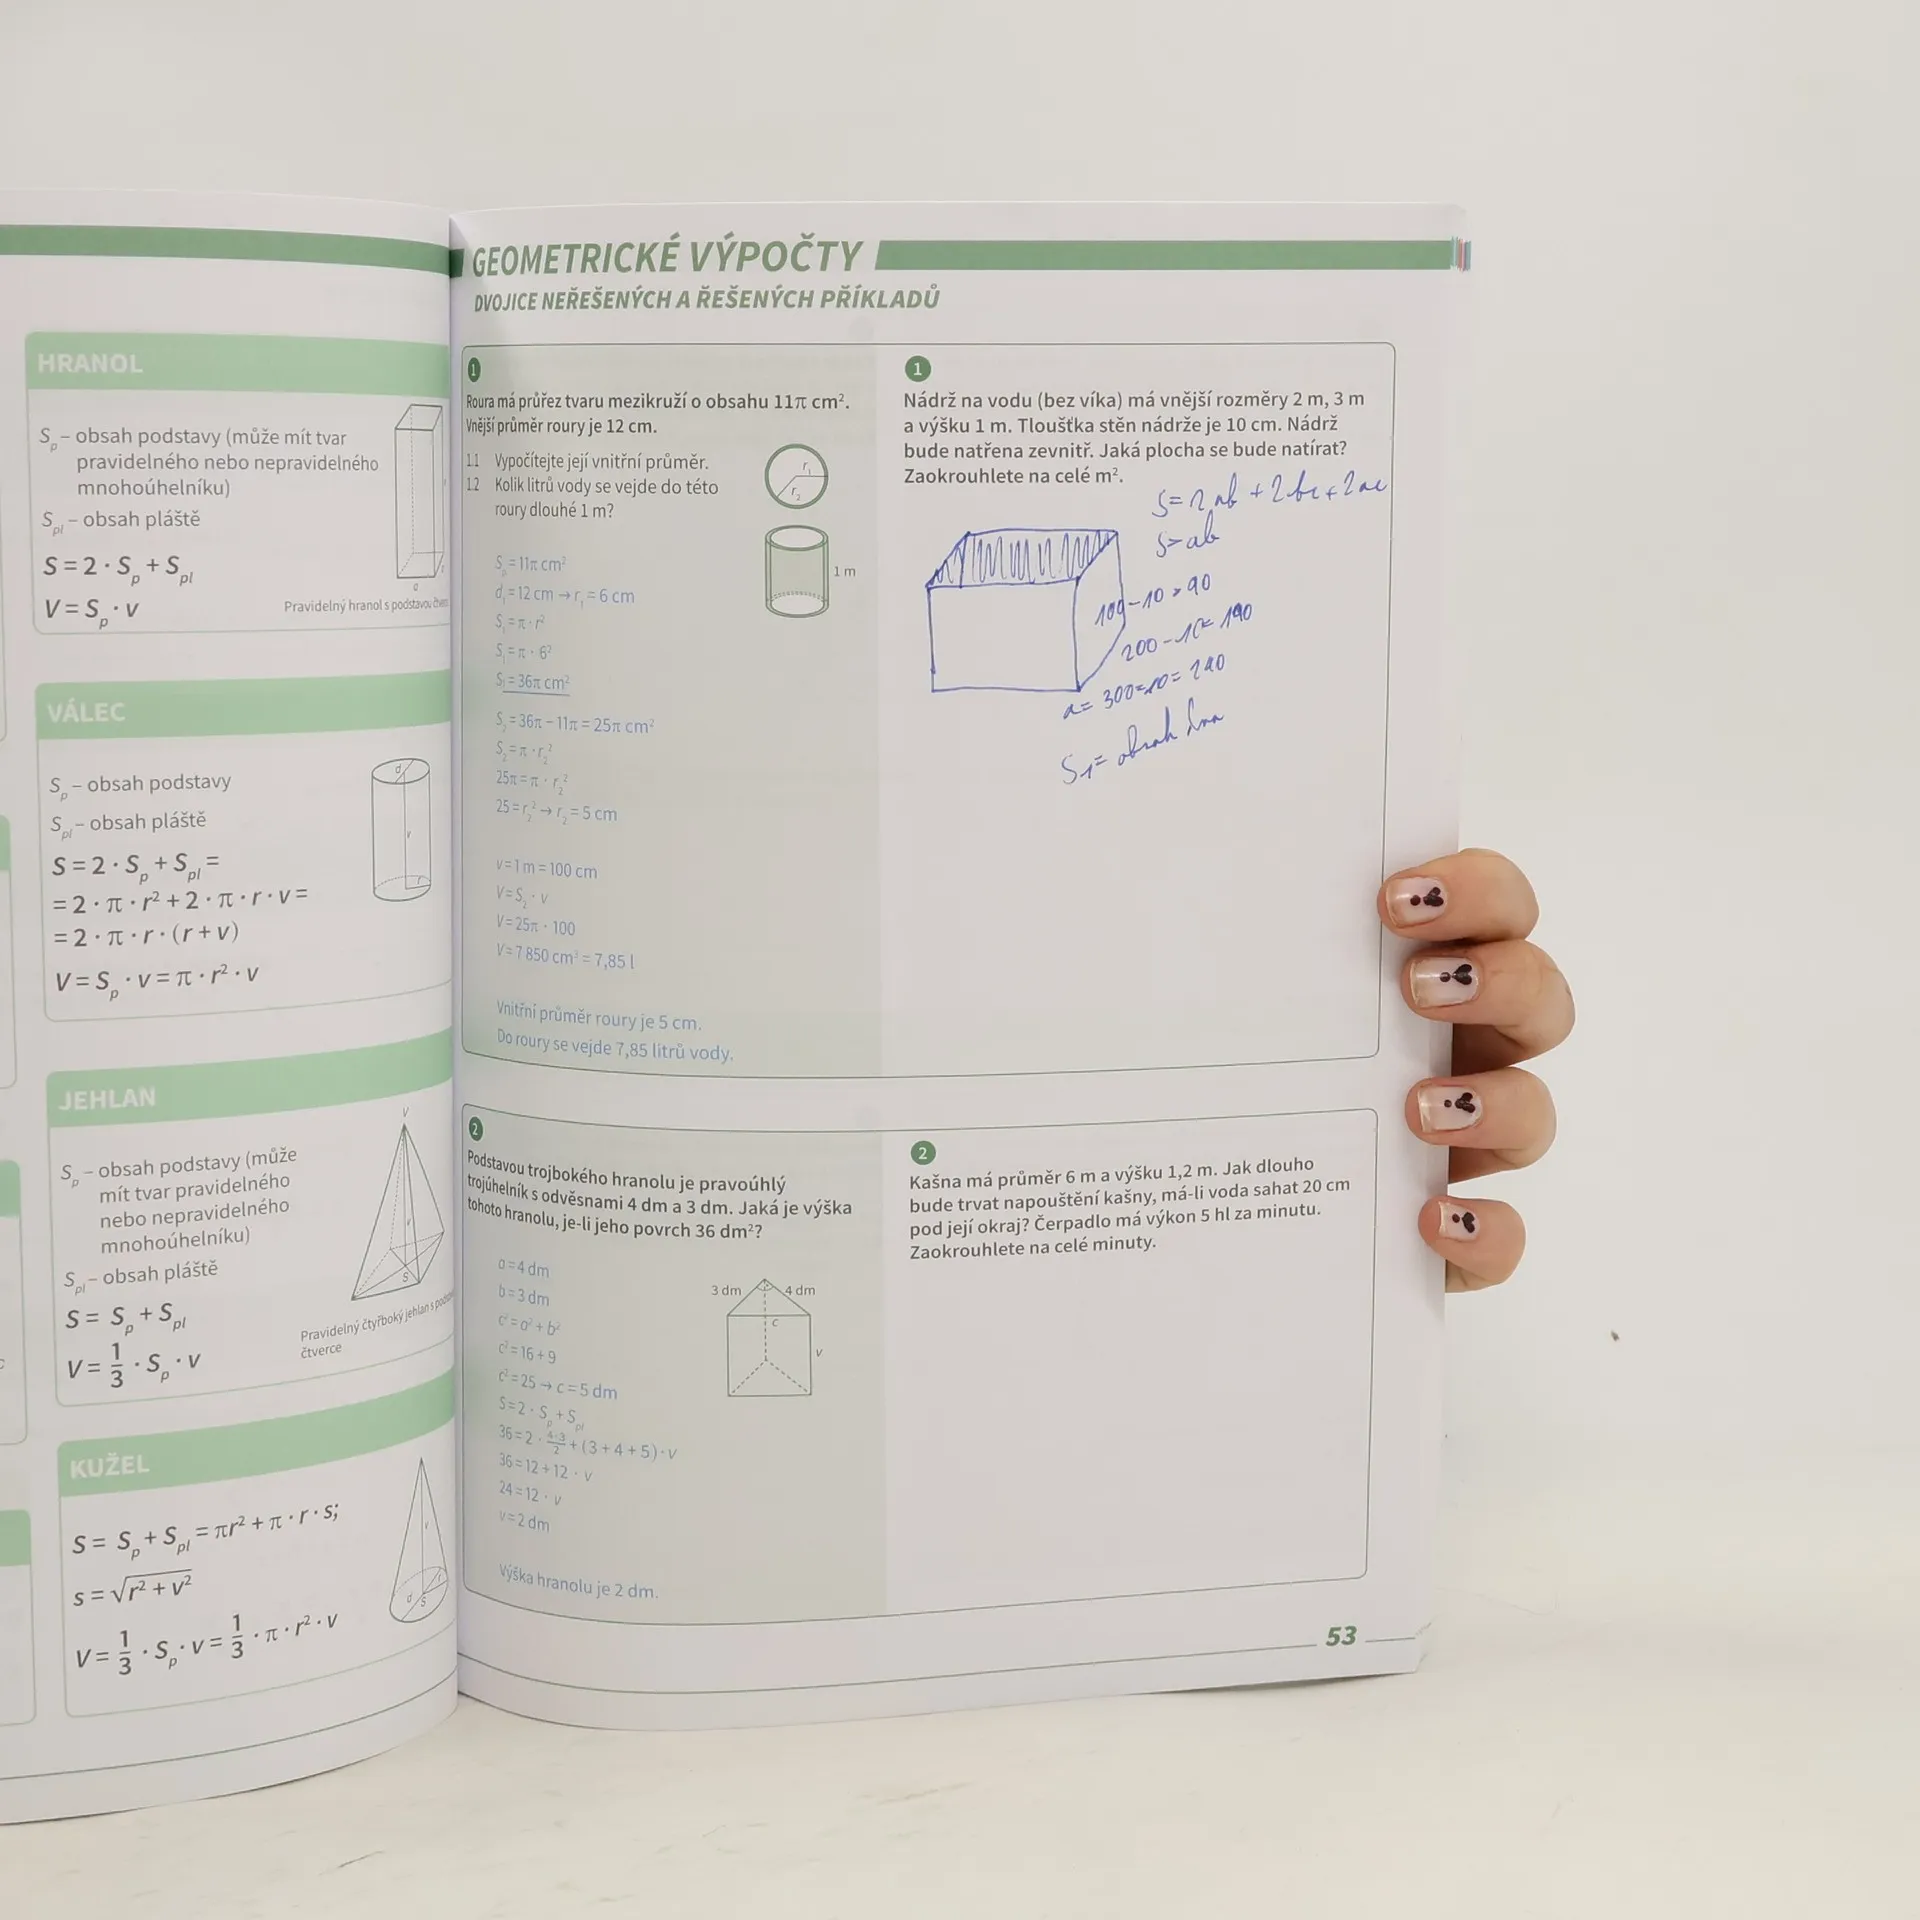 HRANOL
S_p – obsah podstavy (může mít tvar
pravidelného nebo nepravidelného
mnohoúhelníku)
S_pl – obsah pláště
S = 2 · S_p + S_pl
V = S_p · v
a
Pravidelný hranol s podstavou
VÁLEC
S_p – obsah podstavy
S_pl – obsah pláště
S = 2 · S_p + S_pl =
= 2 · π · r² + 2 · π · r · v =
= 2 · π · r · (r + v)
V = S_p · v = π · r² · v
d
v
r
JEHLAN
S_p – obsah podstavy (může
mít tvar pravidelného
nebo nepravidelného
mnohoúhelníku)
S_pl – obsah pláště
S = S_p + S_pl
V = 1/3 · S_p · v
V
v
S
Pravidelný čtyřboký jehlan s
čtverce
KUŽEL
S = S_p + S_pl = πr² + π · r · s;
s = √r² + v²
V = 1/3 · S_p · v = 1/3 · π · r² · v
v
r
d
S
GEOMETRICKÉ VÝPOČTY
DVOJICE NEŘEŠENÝCH A ŘEŠENÝCH PŘÍKLADŮ
1
Roura má průřez tvaru mezikruží o obsahu 11π cm².
Vnější průměr roury je 12 cm.
1.1 Vypočítejte její vnitřní průměr.
1.2 Kolik litrů vody se vejde do této
roury dlouhé 1 m?
r₁
r₂
1 m
d₁ = 12 cm → r₁ = 6 cm
S₁ = π · r²
S₁ = π · 6²
S₁ = 36π cm²
S₂ = 36π – 11π = 25π cm²
S₂ = π · r₂²
25π = π · r₂²
25 = r₂² → r₂ = 5 cm
v = 1 m = 100 cm
V = S₂ · v
V = 25π · 100
V = 7 850 cm³ = 7,85 l
Vnitřní průměr roury je 5 cm.
Do roury se vejde 7,85 litrů vody.
1
Nádrž na vodu (bez víka) má vnější rozměry 2 m, 3 m
a výšku 1 m. Tloušťka stěn nádrže je 10 cm. Nádrž
bude natřena zevnitř. Jaká plocha se bude natírat?
Zaokrouhlete na celé m².
S = 2ab + 2bc + 2ac
S = ab
100 – 10 = 90
200 – 10 = 190
a = 300 – 10 = 290
S₁ = obsah dna
2
Podstavou trojbokého hranolu je pravoúhlý
trojúhelník s odvěsnami 4 dm a 3 dm. Jaká je výška
tohoto hranolu, je-li jeho povrch 36 dm²?
3 dm
4 dm
c
v
a = 4 dm
b = 3 dm
c² = a² + b²
c² = 16 + 9
c² = 25 → c = 5 dm
S = 2 · S_p + S_pl
36 = 2 · 4·3/2 + (3 + 4 + 5) · v
36 = 12 + 12 · v
24 = 12 · v
v = 2 dm
Výška hranolu je 2 dm.
2
Kašna má průměr 6 m a výšku 1,2 m. Jak dlouho
bude trvat napouštění kašny, má-li voda sahat 20 cm
pod její okraj? Čerpadlo má výkon 5 hl za minutu.
Zaokrouhlete na celé minuty.
53